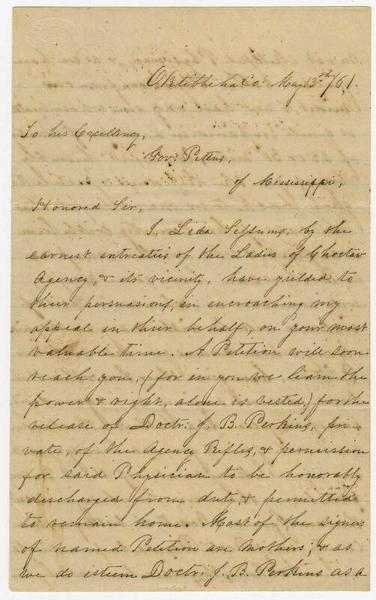 Oktibbeha Co. May 13th/61.
To his Excellency,
Gov. Pettus,
of Mississippi,
Honored Sir,
I, Lida Sessums, by the
earnest intreaties of the Ladies of Choctaw
Agency, & its vicinity, have yielded to
their persuasions, in incroaching my
appeal in their behalf, on your most
valuable time. A Petition will soon
reach you, (for in you we learn the
power & right, alone is vested,) for the
release of Doctr. J. B. Perkins, pri-
vate, of the Agency Rifles, & permission
for said Physician to be honorably
discharged from duty, & permitted
to remain home. Most of the signers
of named Petition are Mothers, & as
we do esteem Doctr. J. B. Perkins as a